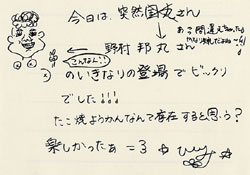 今日は、突然国丸さん
あっ間違えちゃった
野村邦丸さん
こんなん!!
のいきなりの登場でビックリ
でした!!!
たこ焼ようかんなんて存在すると思う?
楽しかったぁ=3